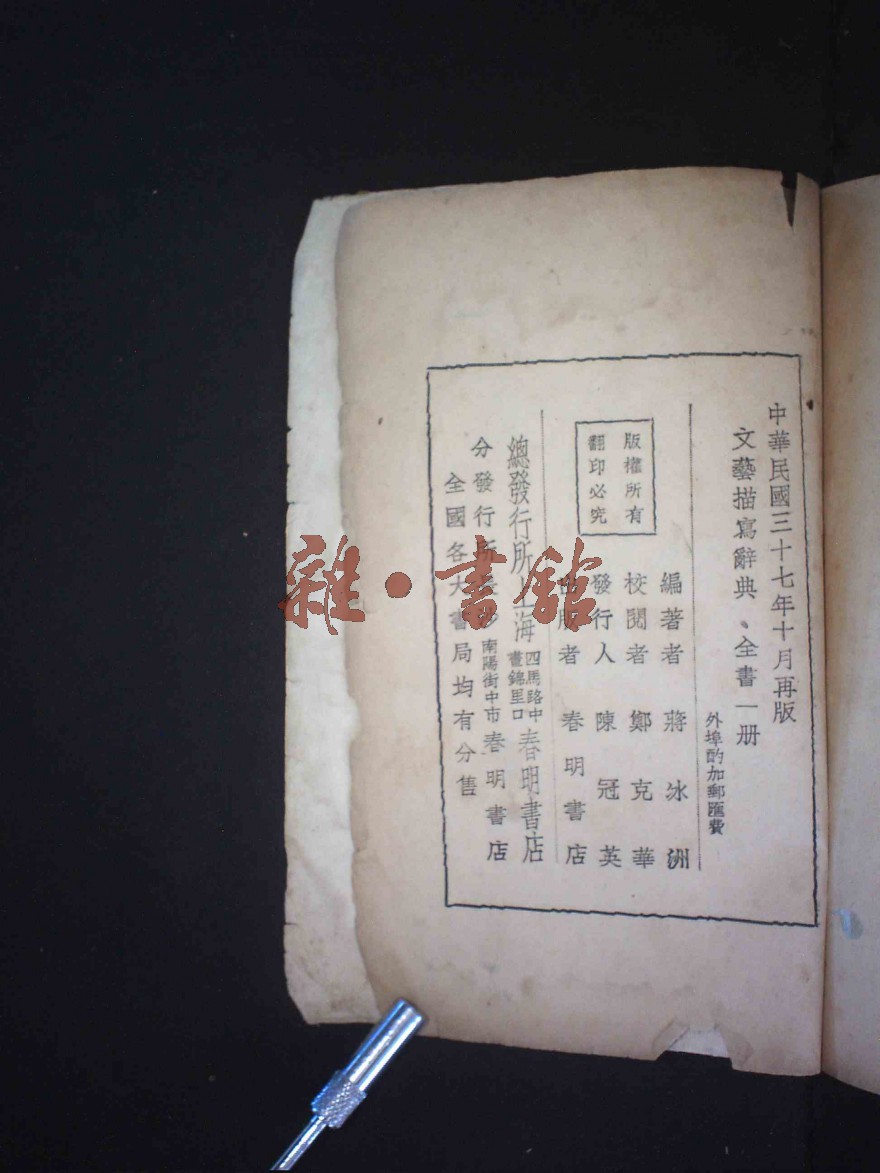 中華民國三十七年十月再版
文藝描寫辭典、全書一册
外埠酌加郵匯費
編著者 蔣冰洲
校閱者 鄭克華
發行人 陳冠英
出版者 春明書店
版權所有
翻印必究
總發行所 上海 四馬路中 畫錦里口 春明書店
分發行所 長沙 南陽街中市 春明書店
全國各大書局均有分售
雜·書館